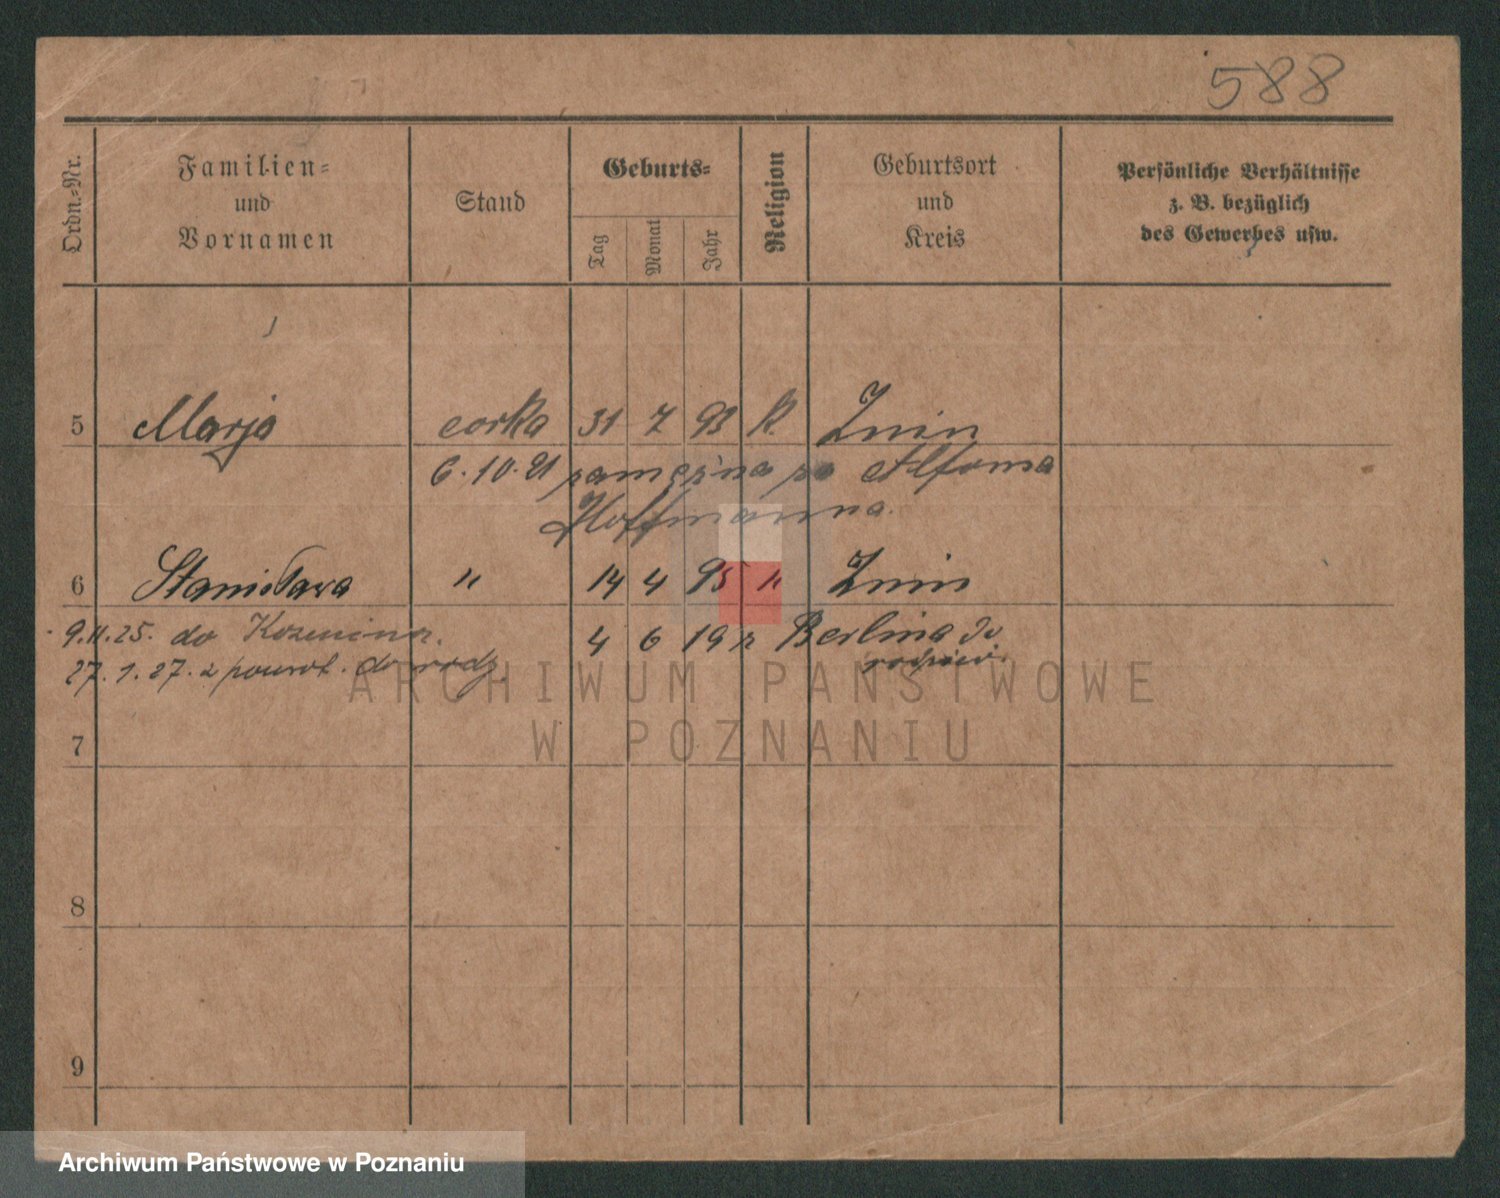 588
Ordn.-Nr.
Familien-
und
Vornamen
Stand
Geburts-
Tag
Monat
Jahr
Religion
Geburtsort
und
Kreis
Persönliche Verhältnisse
z. B. bezüglich
des Gewerbes usw.
5 Marja corka 31 7 93 k. Znin
6. 10. 21 zamężna za Alfonsa
Hoffmanna.
6 Stanisława " 14 4 95 " Znin
9.11.25. do
4 6 19 z Berlina do
27.1.27. z powrot. do rodz.
rodziców.
ARCHIWUM PAŃSTWOWE
W POZNANIU
7
8
9
Archiwum Państwowe w Poznaniu